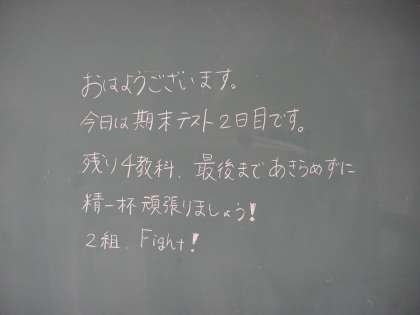 おはようございます。
今日は期末テスト2日目です。
残り4教科、最後まであきらめずに
精一杯頑張りましょう!
2組、Fight!